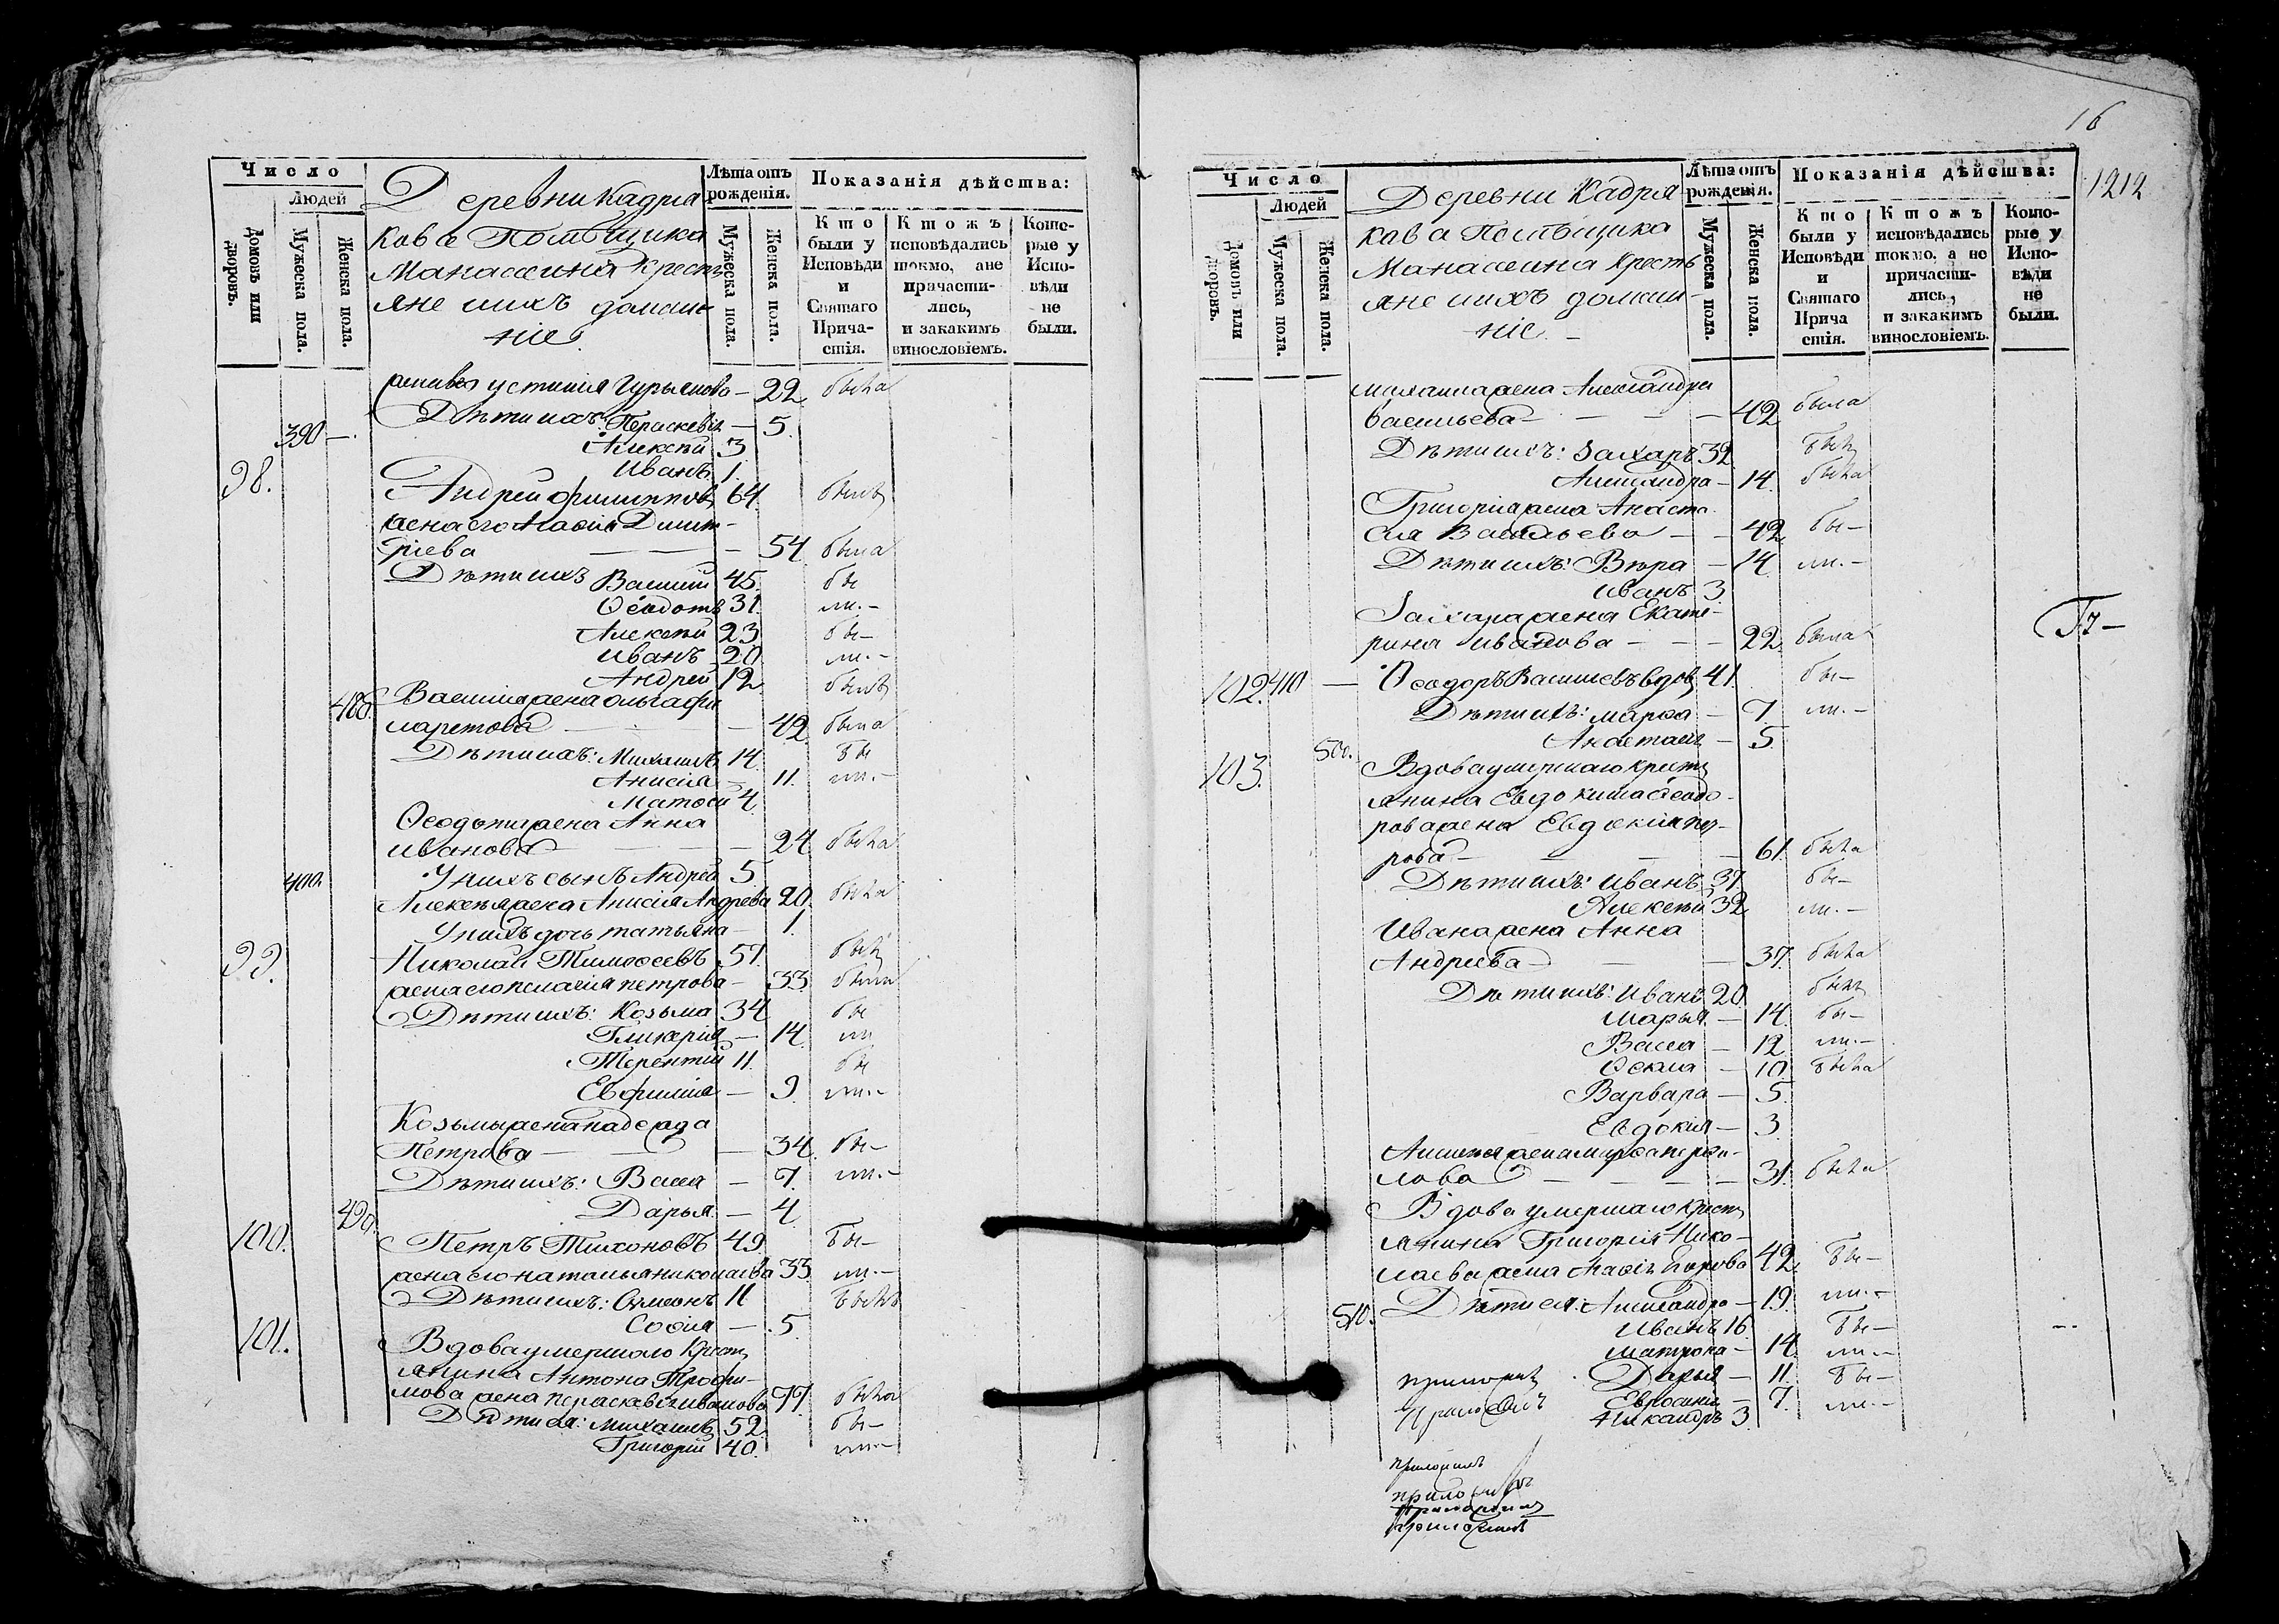 Число
Людей
Домовъ или дворовъ.
Мужеска пола.
Женска пола.
Деревни Кадря
кова Помѣщика
Манассеина Кресть
яне и ихъ домаш
ніе
Лѣта отъ рожденія.
Мужеска пола.
Женска пола.
Показанія дѣйства:
Кто были у Исповѣди и Святаго Причастія.
Ктожъ исповѣдались токмо, а не причастились, и закакимъ винословіемъ.
Которые у Исповѣди не были.
Устинія Гурьянова — 22 была
Дѣти ихъ: Параскевія — 5
390 — Алексѣй 3
Иванъ 1
98. Андрей Филипповъ 64 былъ
жена его Агафія Дмит-
ріева — — — 54 была
Дѣти ихъ Василій 45 бы
Ѳеодотъ 31 ли. —
Алексѣй 23 бы —
Иванъ 20 ли. —
Андрей 12 былъ
480. Василія жена Ольга Фи
ларетова — 42 была
Дѣти ихъ: Михаилъ 14 бы
Анисія — 11 ли. —
Матѳей 4
Ѳеодота жена Анна
Иванова — 24 была
400. У нихъ сынъ Андрей 5
Алексѣя жена Анисія Андрева 20 была
У нихъ дочь Татьяна — 1
99. Николай Тимоѳеевъ 51 былъ
жена его Пелагія Петрова — 33 была
Дѣти ихъ: Козьма 34 бы
Гликерія — 14 ли
Терентій 11 бы
Евфимія — 9 ли. —
Козьмы жена Надежда
Петрова — — 34 бы —
Дѣти ихъ: Васса — 7 ли. —
490. Дарья — 4
100. Петръ Тихоновъ 49 бы —
жена его Наталья Николаева 33 ли. —
Дѣти ихъ: Симеонъ 11 былъ
Софія — 5
101. Вдова умершаго Кресть
янина Антона Трофи-
мова жена Параскевія Иванова 77 была
Дѣти ея: Михаилъ 52 бы —
Григорій 40 ли —
16
1212
Число
Людей
Домовъ или дворовъ.
Мужеска пола.
Женска пола.
Деревни Кадря
кова Помѣщика
Манассеина Кресть
яне и ихъ домаш-
ніе. —
Лѣта отъ рожденія.
Мужеска пола.
Женска пола.
Показанія дѣйства:
Кто были у Исповѣди и Святаго Причастія.
Ктожъ исповѣдались токмо, а не причастились, и закакимъ винословіемъ.
Которые у Исповѣди не были.
Михаила жена Александра
Васильева — — — 42 была
Дѣти ихъ: Захаръ 32 былъ
Александра — 14 была
Григорія жена Анаста
сія Васильева — — 42 бы —
Дѣти ихъ: Вѣра — 14 ли. —
Иванъ 3
Захара жена Екате-
рина Иванова — — — 22 была
102. 410 — Ѳеодоръ Василіевъ вдовъ 41 бы —
Дѣти ихъ: Марѳа — 7 ли. —
Анастасія — 5
500.
103. Вдова умершаго кресть
янина Евдокима Ѳеодо-
рова жена Евдокія
рова — — — — 61 была
Дѣти ихъ: Иванъ 37 бы —
Алексѣй 32 ли. —
Ивана жена Анна
Андреева — — — 37 была
Дѣти ихъ: Иванъ 20 былъ
Марья — 14 бы —
Васса — 12 ли. —
Ѳекла — 10 была
Варвара — 5
Евдокія — 3
Алексѣя жена Марѳа
лова — — — — 31 была
Вдова умершаго Кресть
янина Григорія Нико-
лаева жена Агафія Егорова 42 бы —
510. Дѣти ея: Александра — 19 ли. —
Иванъ 16 бы —
Матрона — 14 ли. —
Дарья — 11 бы —
Евросинія — 7 ли. —
Никандръ 3